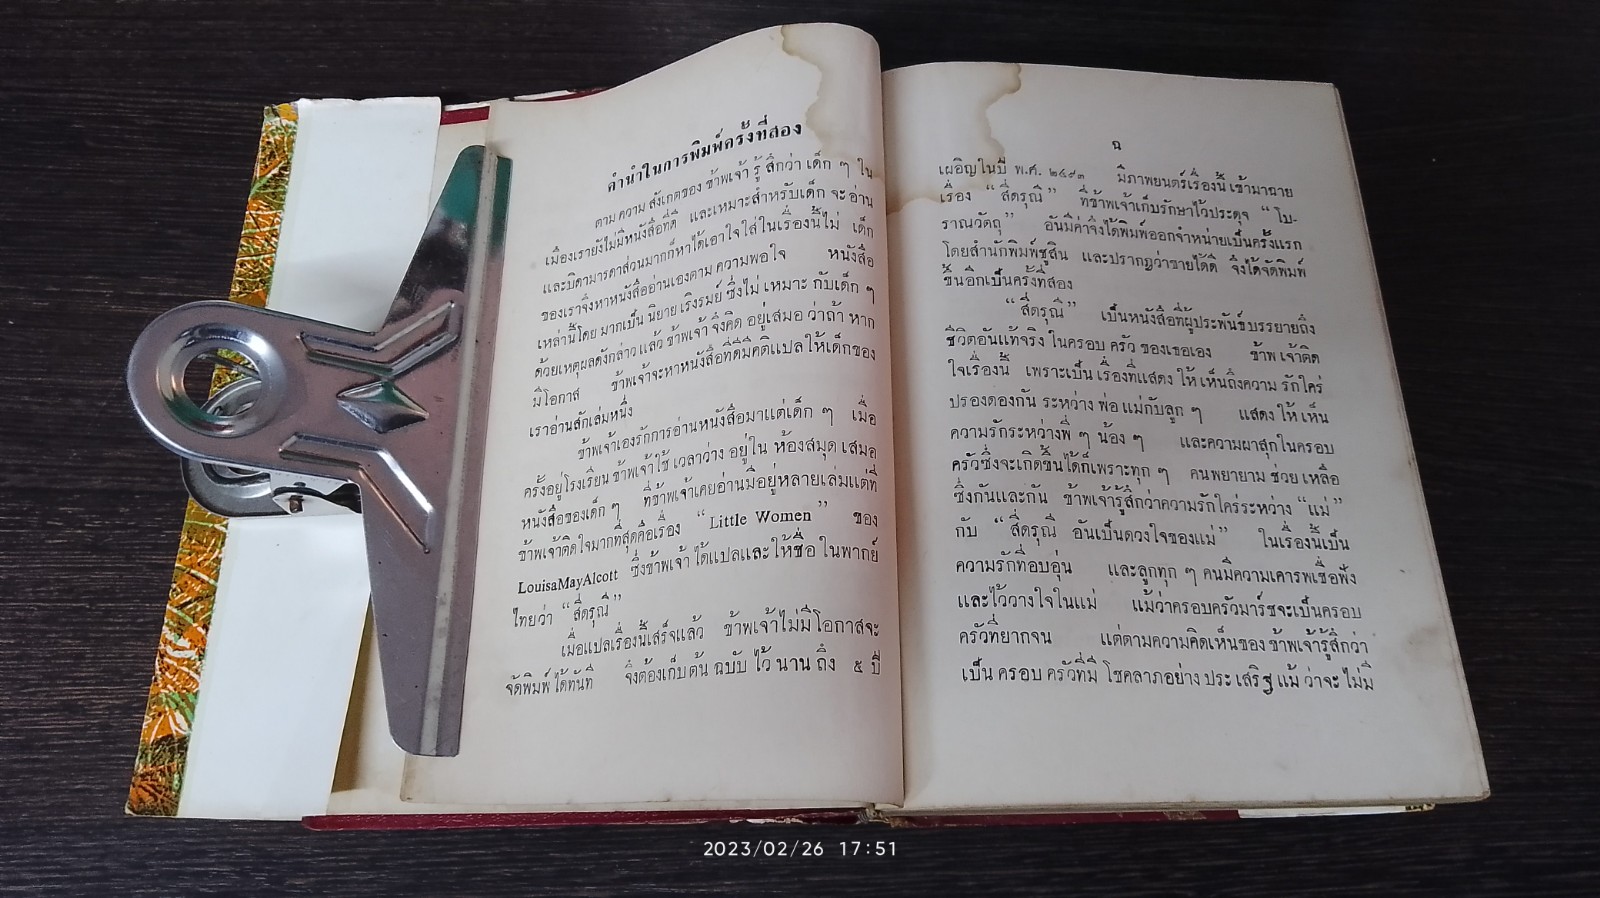 คำนำในการพิมพ์ครั้งที่สอง
ตาม ความ สังเกตของ ข้าพเจ้า รู้ สึกว่า เด็ก ๆ ใน
เมืองเรายังไม่มีหนังสือที่ดี และเหมาะสำหรับเด็ก จะ อ่าน
และบิดามารดาส่วนมากก็หาได้เอาใจใส่ในเรื่องนี้ไม่ เด็ก
ของเราจึงหาหนังสืออ่านเองตาม ความพอใจ หนังสือ
เหล่านี้โดย มากเป็น นิยาย เริงรมย์ ซึ่งไม่ เหมาะ กับเด็ก ๆ
ด้วยเหตุผลดังกล่าว แล้ว ข้าพเจ้า จึงคิด อยู่เสมอ ว่าถ้า หาก
มีโอกาส ข้าพเจ้าจะหาหนังสือที่ดีมีคติแปลให้เด็กของ
เราอ่านสักเล่มหนึ่ง
ข้าพเจ้าเองรักการอ่านหนังสือมาแต่เด็ก ๆ เมื่อ
ครั้งอยู่โรงเรียน ข้าพเจ้าใช้ เวลาว่าง อยู่ใน ห้องสมุด เสมอ
หนังสือของเด็ก ๆ ที่ข้าพเจ้าเคยอ่านมีอยู่หลายเล่มแต่ที่
ข้าพเจ้าติดใจมากที่สุดคือเรื่อง “Little Women” ของ
LouisaMayAlcott ซึ่งข้าพเจ้า ได้แปลและให้ชื่อ ในพากย์
ไทยว่า “สี่ดรุณี”
เมื่อแปลเรื่องนี้เสร็จแล้ว ข้าพเจ้าไม่มีโอกาสจะ
จัดพิมพ์ ได้ทันที จึงต้องเก็บ ต้น ฉบับ ไว้ นาน ถึง ๕ ปี
ฉ
เผอิญในปี พ.ศ. ๒๔๙๓ มีภาพยนตร์เรื่องนี้ เข้ามาฉาย
เรื่อง “สี่ดรุณี” ที่ข้าพเจ้าเก็บรักษาไว้ประดุจ “โบ-
ราณวัตถุ” อันมีค่าจึงได้พิมพ์ออกจำหน่ายเป็นครั้งแรก
โดยสำนักพิมพ์ชูสิน และปรากฏว่าขายได้ดี จึงได้จัดพิมพ์
ขึ้นอีกเป็นครั้งที่สอง
“สี่ดรุณี” เป็นหนังสือที่ผู้ประพันธ์บรรยายถึง
ชีวิตอันแท้จริง ในครอบ ครัว ของเธอเอง ข้าพ เจ้าติด
ใจเรื่องนี้ เพราะเป็น เรื่องที่แสดง ให้ เห็นถึงความ รักใคร่
ปรองดองกัน ระหว่าง พ่อ แม่กับลูก ๆ แสดง ให้ เห็น
ความรักระหว่างพี่ ๆ น้อง ๆ และความผาสุกในครอบ
ครัวซึ่งจะเกิดขึ้นได้ก็เพราะทุก ๆ คนพยายาม ช่วย เหลือ
ซึ่งกันและกัน ข้าพเจ้ารู้สึกว่าความรักใคร่ระหว่าง “แม่”
กับ “สี่ดรุณี อันเป็นดวงใจของแม่” ในเรื่องนี้เป็น
ความรักที่อบอุ่น และลูกทุก ๆ คนมีความเคารพเชื่อฟัง
และไว้วางใจในแม่ แม้ว่าครอบครัวมาร์ชจะเป็นครอบ
ครัวที่ยากจน แต่ตามความคิดเห็นของ ข้าพเจ้ารู้สึกว่า
เป็น ครอบ ครัวที่มี โชคลาภอย่าง ประ เสริฐ แม้ ว่าจะ ไม่มี
2023/02/26 17:51